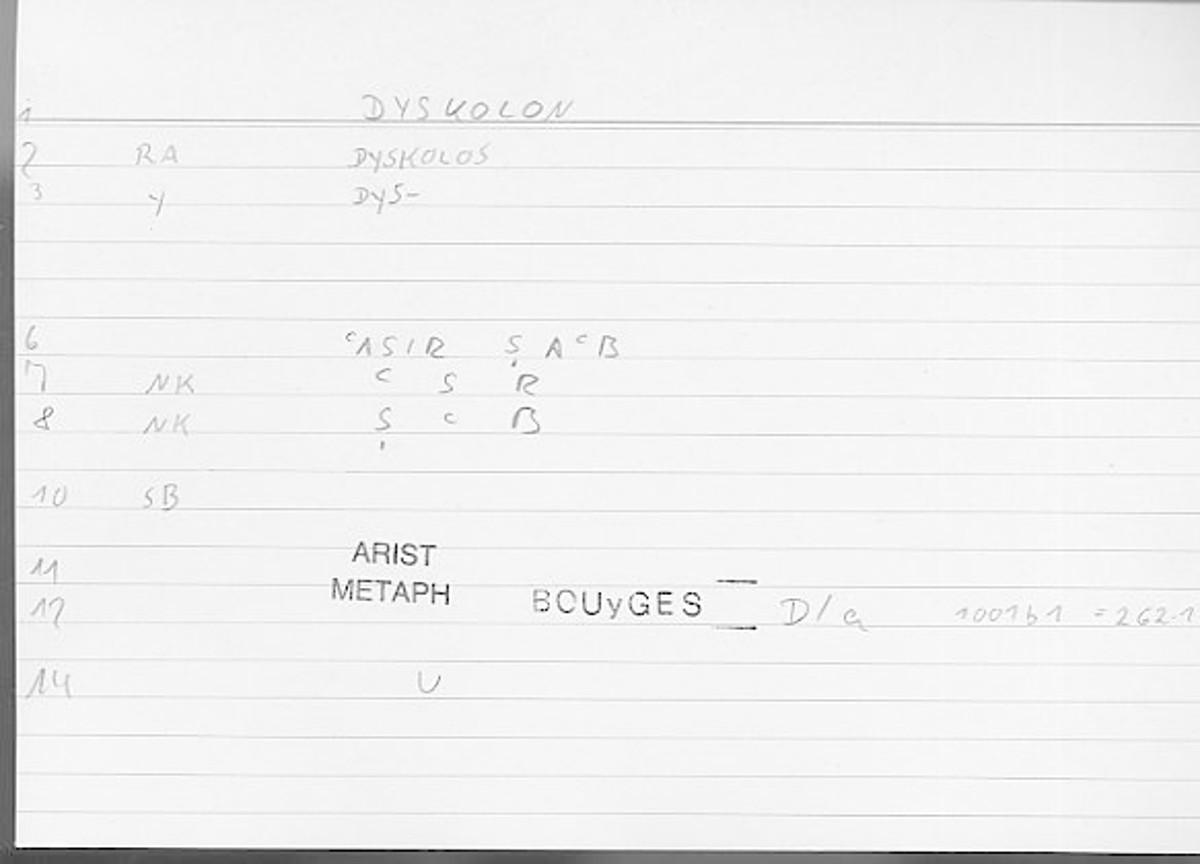 1 DYSKOLON
2 RA DYSKOLOS
3 Y DYS-
6 ᶜASIR ṢAᶜB
7 NK ᶜ S R
8 NK Ṣ ᶜ B
10 SB
11 ARIST
12 METAPH BOUyGES D/a 1001b1 = 262.1
14 U